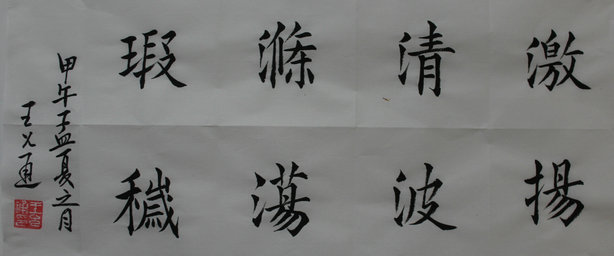 激揚
清波
滌蕩
瑕穢
甲午孟夏之月
王乂通